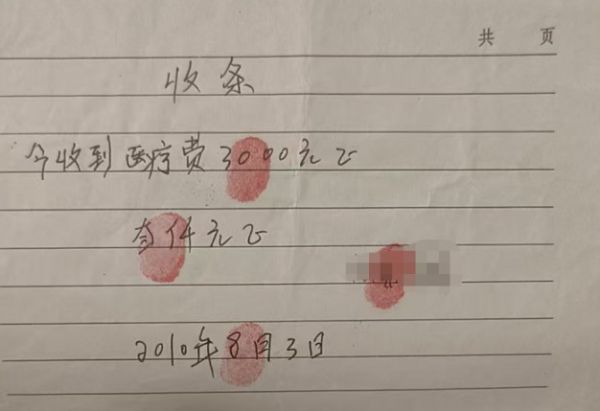 共 页
收条
今收到医疗费3000元正
叁仟元正
2010年8月3日